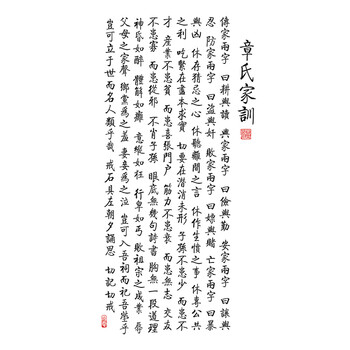 章氏家訓
傳家兩字 曰耕與讀 興家兩字 曰儉與勤 安家兩字 曰讓與
忍 防家兩字 曰盜與奸 敗家兩字 曰嫖與賭 亡家兩字 曰暴
與凶 休存猜忌之心 休聽離間之言 休作生憤之事 休專公共
之利 吃緊在盡本求實 切要在潛消未形 子孫不患少 而患不
才 產業不患貧 而患喜張門戶 筋力不患衰 而患無志 交友
不患寡 而患從邪 不肖子孫 眼底無幾句詩書 胸無一段道理
神昏如醉 體懈如癱 意縱如狂 行卑如丐 敗祖宗之成業 辱
父母之家聲 鄉黨為之羞 妻妾為之泣 豈可入吾祠而祀吾塋乎
豈可立于世而名人類乎哉 戒石具左 朝夕誦思 切記切戒